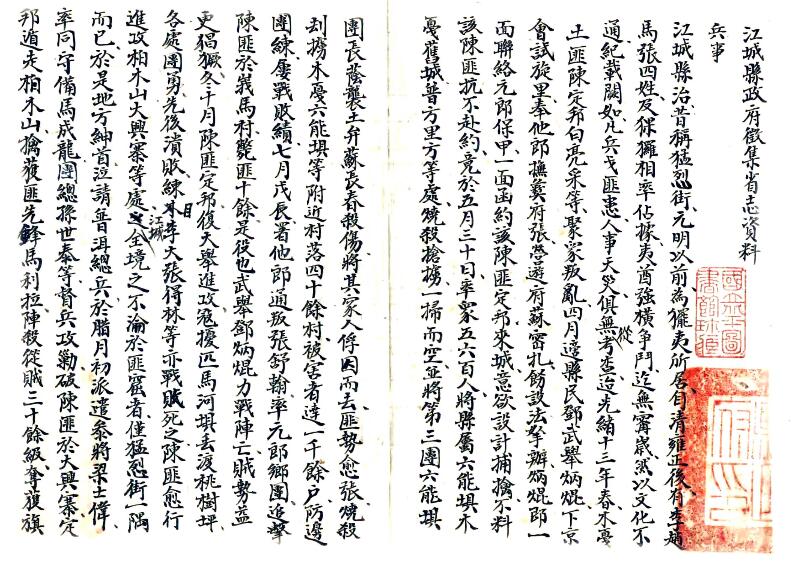 江城縣政府徵集省志資料
兵事
江城縣治昔稱猛烈街元明以前為玀夷所居自清雍正後有李趙
馬張四姓及猓玀相率佔據夷酋強橫爭鬥迄無甯歲然以文化不
通紀載闕如凡兵戈匪患人事天災俱無從考查迨光緒十三年春木戞
土匪陳定邦白亮采等聚眾叛亂四月邊縣民鄧武舉炳焜下京
會試旋里奉他郎撫彝府張營遊府蘇密札飭設法拏辦炳焜即一
面聯絡元郎保甲一面函約該陳匪定邦來城意欲設計捕擒不料
該陳匪抗不赴約竟於五月三十日率眾五六百人將縣屬六能埧木
戞舊城普方里方等處燒殺搶擄一掃而空並將第三團六能埧
團長蔭襲土弁蘇長春殺傷將其家人俘因而去匪勢愈張燒殺
刦擄木戞六能埧等附近村落四十餘村被害者達一千餘户防邊
團練屢戰敗績七月戊長署他郎通叛張舒翰率元郎鄉團追擊
陳匪於羗馬村斃匪十餘是役也武舉鄧炳焜力戰陣亡賊勢益
更猖獗冬十月陳匪定邦復大舉進攻寇擾匹馬河埧丢渡桃樹坪
各處團勇先後潰敗練目李天張得林等亦戰死之陳匪愈行
進攻柏木山大興寨等處江城全境之不淪於匪窟者僅猛烈街一隅
而已於是地方紳首泣請普洱總兵於臘月初派遣叅將梁士偉
率同守備馬成龍團總孫世泰等督兵攻勦破陳匪於大興寨定
邦遁走柏木山擒獲匪先鋒馬利拉陣殺從賊三十餘級奪獲旗